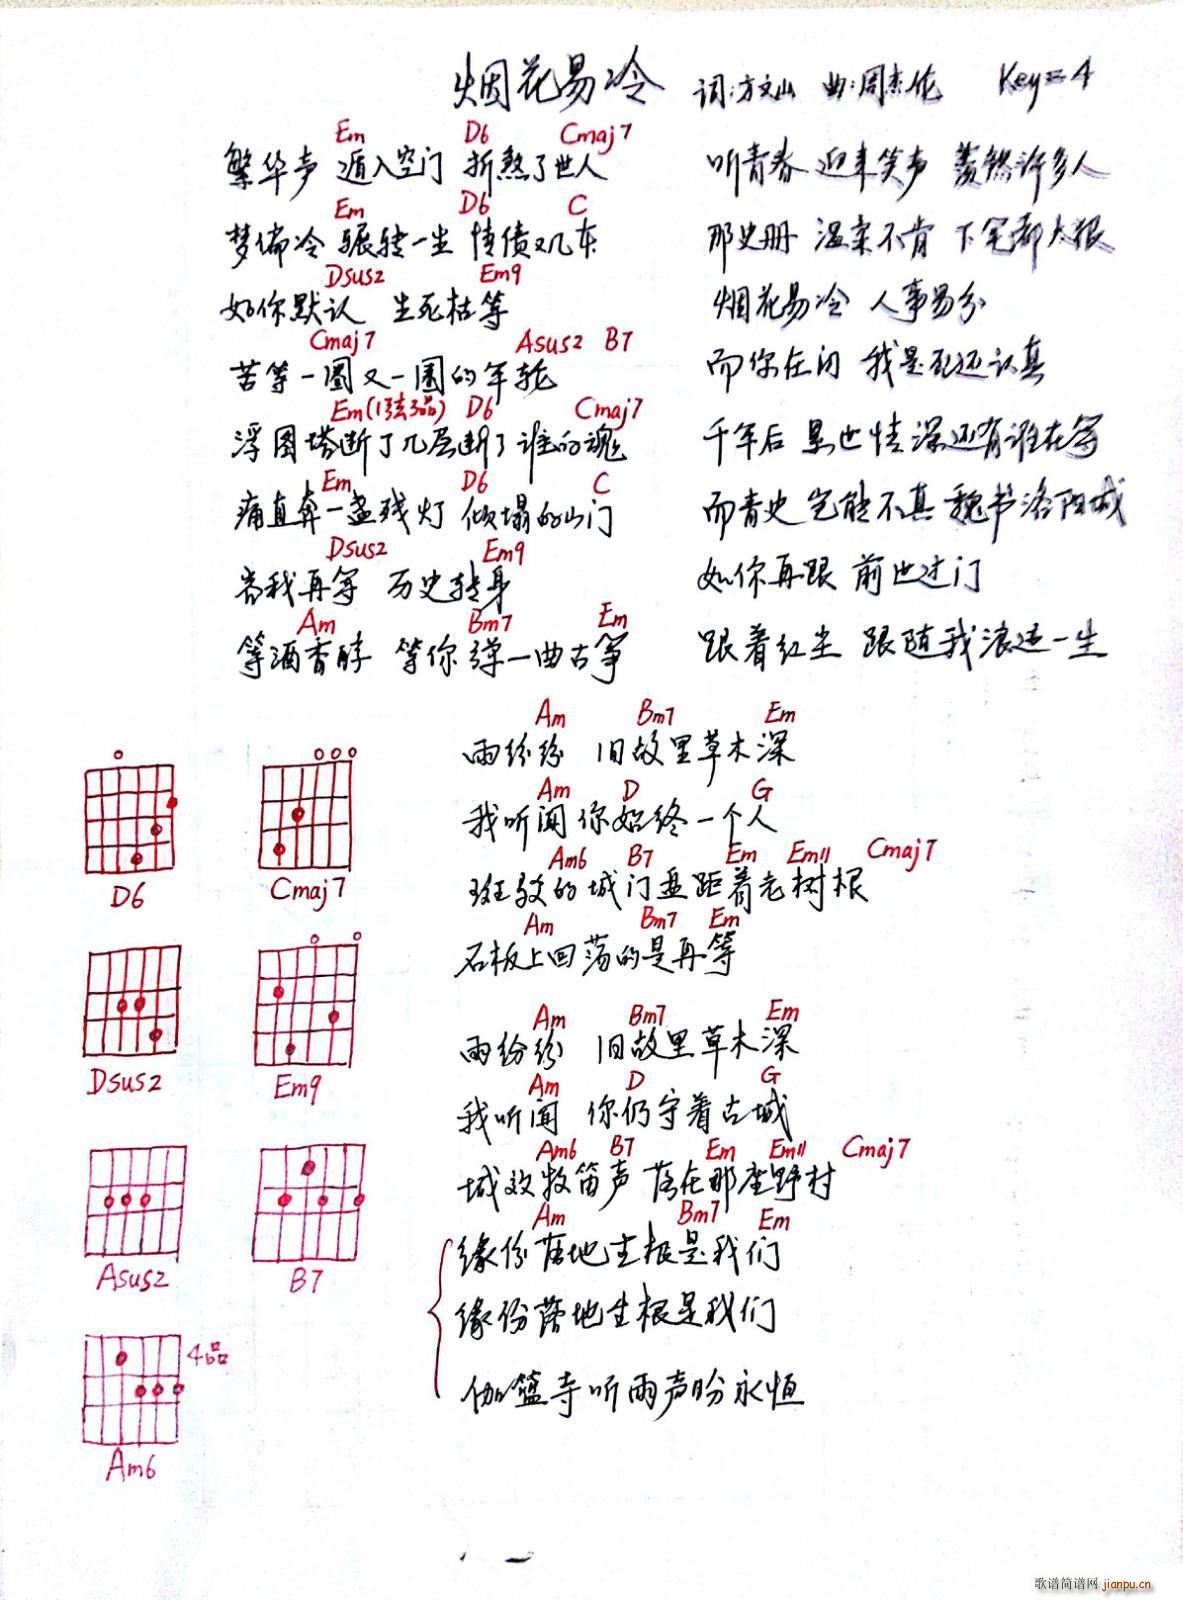 烟花易冷 词:方文山 曲:周杰伦 Key=4
Em D6 Cmaj7
繁华声 遁入空门 折煞了世人
Em D6 C
梦偏冷 辗转一生 情债又几本
Dsus2 Em9
如你默认 生死枯等
Cmaj7 Asus2 B7
苦等一圈又一圈的年轮
Em(1弦3品) D6 Cmaj7
浮图塔断了几层断了谁的魂
Em D6 C
痛直奔一盏残灯 倾塌的山门
Dsus2 Em9
容我再等 历史转身
Am Bm7 Em
等酒香醇 等你弹一曲古筝
听青春 迎来笑声 羡煞许多人
那史册 温柔不肯 下笔都太狠
烟花易冷 人事易分
而你在问 我是否还认真
千年后 累世情深还有谁在等
而青史 岂能不真 魏书洛阳城
如你再跟 前世过门
跟着红尘 跟随我浪迹一生
Am Bm7 Em
雨纷纷 旧故里草木深
Am D G
我听闻 你始终一个人
Am6 B7 Em Em11 Cmaj7
斑驳的城门盘踞着老树根
Am Bm7 Em
石板上回荡的是再等
Am Bm7 Em
雨纷纷 旧故里草木深
Am D G
我听闻 你仍守着古城
Am6 B7 Em Em11 Cmaj7
城效牧笛声 落在那座野村
Am Bm7 Em
缘份落地生根是我们
缘份落地生根是我们
伽篮寺听雨声盼永恒
D6 Cmaj7
Dsus2 Em9
Asus2 B7
4品
Am6
歌谱简谱网 jianpu.cn